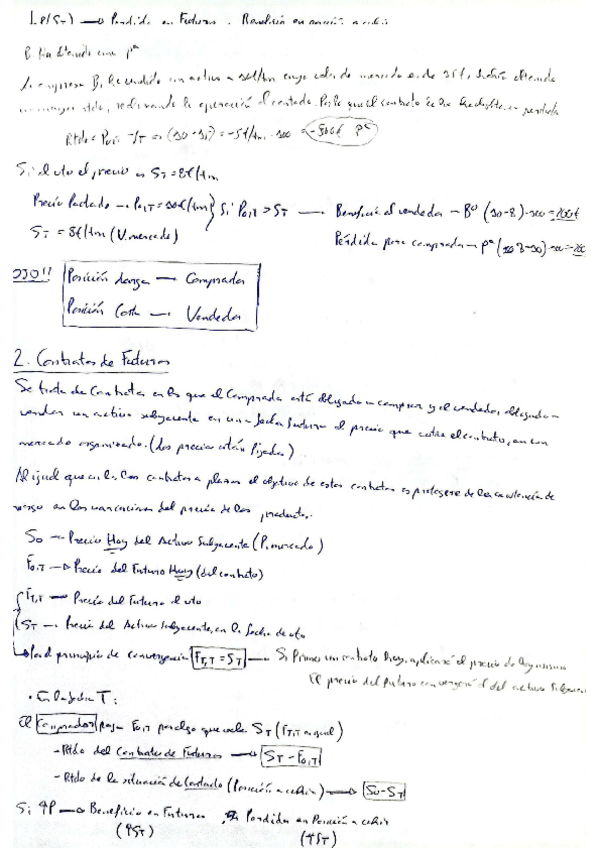 ↓P(ST) → Perdida en Futuros. Beneficio en posición a cubrir
B. ha obtenido una pª
La empresa B, ha vendido un activo a 30€/tm cuyo valor de mercado es de 35€, habría obtenido
un mayor rtdo, realizando la operación al contado. Por lo que el contrato le ha , en perdida
Rtdo = P0,T - ST =
Si al vto el precio es ST = 8€/tm
Precio Pactado → P0,T = 10€/tm } Si P0,T > ST → Beneficio al vendedor → Bº (10-8)
ST = 8€/tm (V. mercado)
Pérdida para comprador → Pª
OJO!! Posición Larga → Comprador
Posición Corta → Vendedor
2. Contratos de Futuros
Se trata de Contratos en los que el Comprador está obligado a comprar y el vendedor, obligado a
vender un activo subyacente en una fecha futura al precio que cotiza el contrato, en un
mercado organizado. (Los precios están fijados)
Al igual que en los contratos a plazo el objetivo de estos contratos es protegerse de la existencia de
riesgo en las variaciones del precio de los productos.
S0 → Precio Hoy del Activo Subyacente (P. mercado)
F0,T → Precio del Futuro Hoy (del contrato)
FT,T → Precio del Futuro al vto
ST → Precio del Activo Subyacente, en la fecha de vto
Por el principio de convergencia FT,T = ST → Si firmo un contrato hoy, aplicaré el precio de hoy mismo
El precio del futuro convergerá al del activo Subyacente
• En la fecha T:
El Comprador paga F0,T por algo que vale ST (FT,T es igual)
- Rtdo del Contrato de Futuros → ST - F0,T
- Rtdo de la situación de Contado (Posición a cubrir) → S0 - ST
Si ↑P → Beneficio en Futuros Perdida en Posición a cubrir
(↑ST) (↑ST)